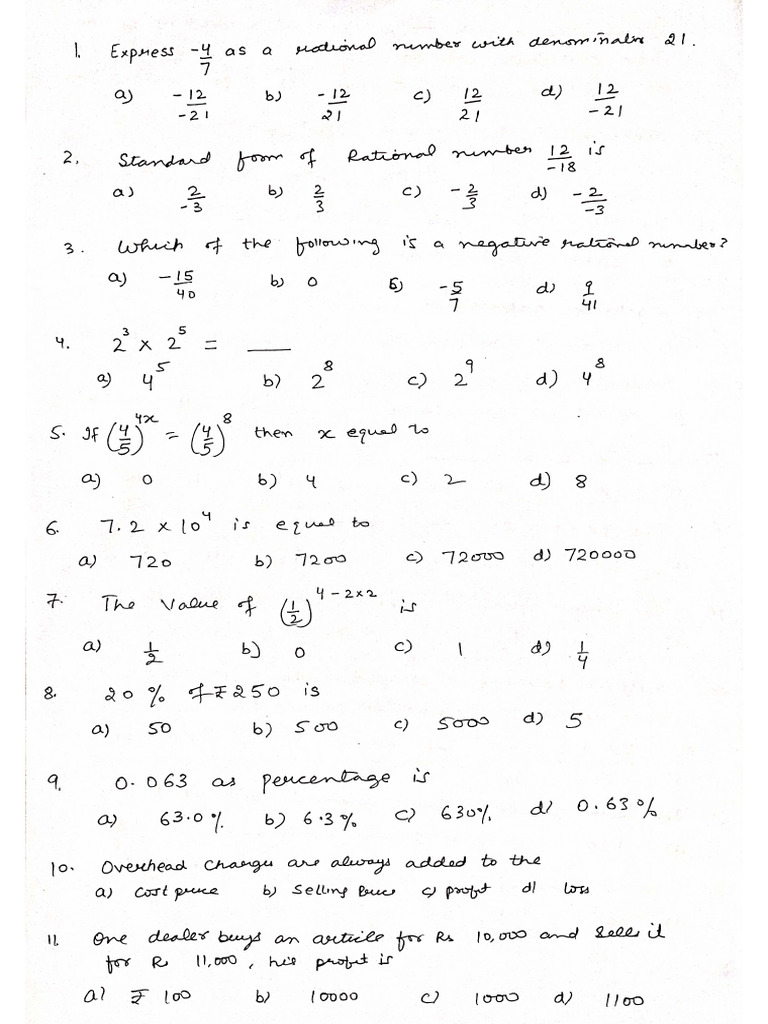 1. Express -4/7 as a rational number with denominator 21.
a) -12/-21 b) -12/21 c) 12/21 d) 12/-21
2. Standard form of Rational number 12/-18 is
a) 2/-3 b) 2/3 c) -2/3 d) -2/-3
3. Which of the following is a negative rational number?
a) -15/40 b) 0 c) -5/7 d) 9/41
4. 2³ × 2⁵ = ___
a) 4⁵ b) 2⁸ c) 2⁹ d) 4⁸
5. If (4/5)^4x = (4/5)^8 then x equal to
a) 0 b) 4 c) 2 d) 8
6. 7.2 × 10⁴ is equal to
a) 720 b) 7200 c) 72000 d) 720000
7. The Value of (1/2)^4-2×2 is
a) 1/2 b) 0 c) 1 d) 1/4
8. 20 % of ₹ 250 is
a) 50 b) 500 c) 5000 d) 5
9. 0.063 as percentage is
a) 63.0% b) 6.3% c) 630% d) 0.63%
10. Overhead Charges are always added to the
a) Cost price b) Selling Price c) profit d) loss
11. One dealer buys an article for Rs 10,000 and sells it
for Rs 11,000, his profit is
a) ₹ 100 b) 10000 c) 1000 d) 1100